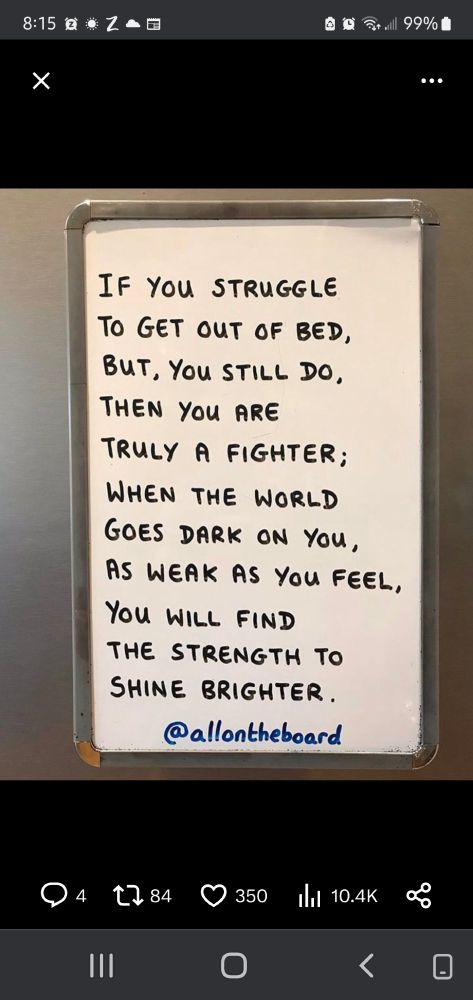 8:15
99%
IF YOU STRUGGLE
TO GET OUT OF BED,
BUT, YOU STILL DO,
THEN YOU ARE
TRULY A FIGHTER;
WHEN THE WORLD
GOES DARK ON YOU,
AS WEAK AS YOU FEEL,
YOU WILL FIND
THE STRENGTH TO
SHINE BRIGHTER.
@allontheboard
4 84 350 10.4K